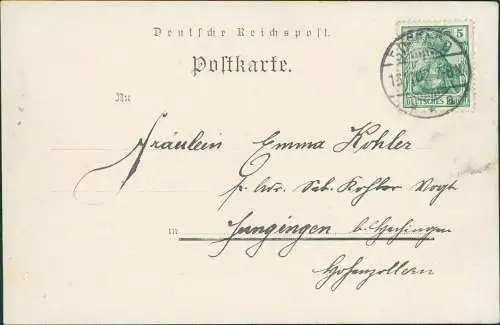 Deutsche Reichspost.
Postkarte.
5
DEUTSCHES REICH
An
Fräulein Emma Kohler
p. Adr. Seb. Kohler Vogt
in Jungingen b. Hechingen
Hohenzollern